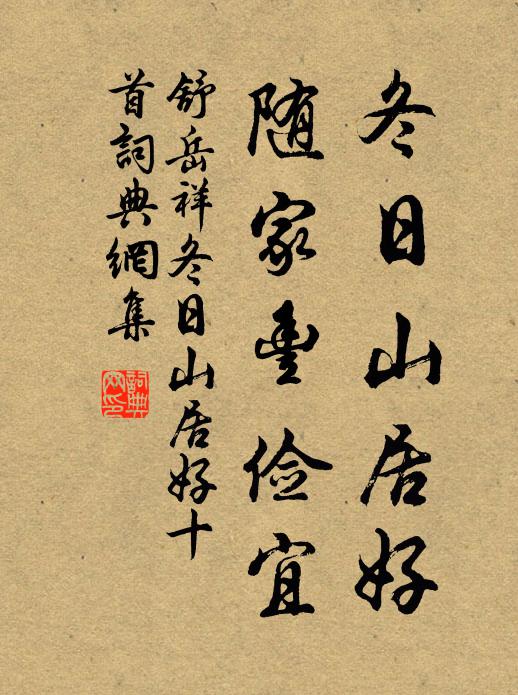 冬日山居好
随家豊俭宜
舒岳祥冬日山居好十
首詞典網集
詞典網印